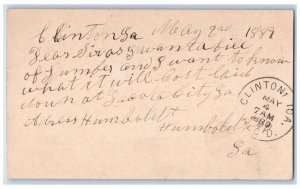 Clinton Ia May 2nd 1889
Dear Sirs as I want a bill
of Lumber and I want to know
what it will cost laid
down at Dacota City Ia
Adress Humboldt
Humboldt Co
Ia
CLINTON, IOA.
MAY
4
7 AM
1889
REC'D.